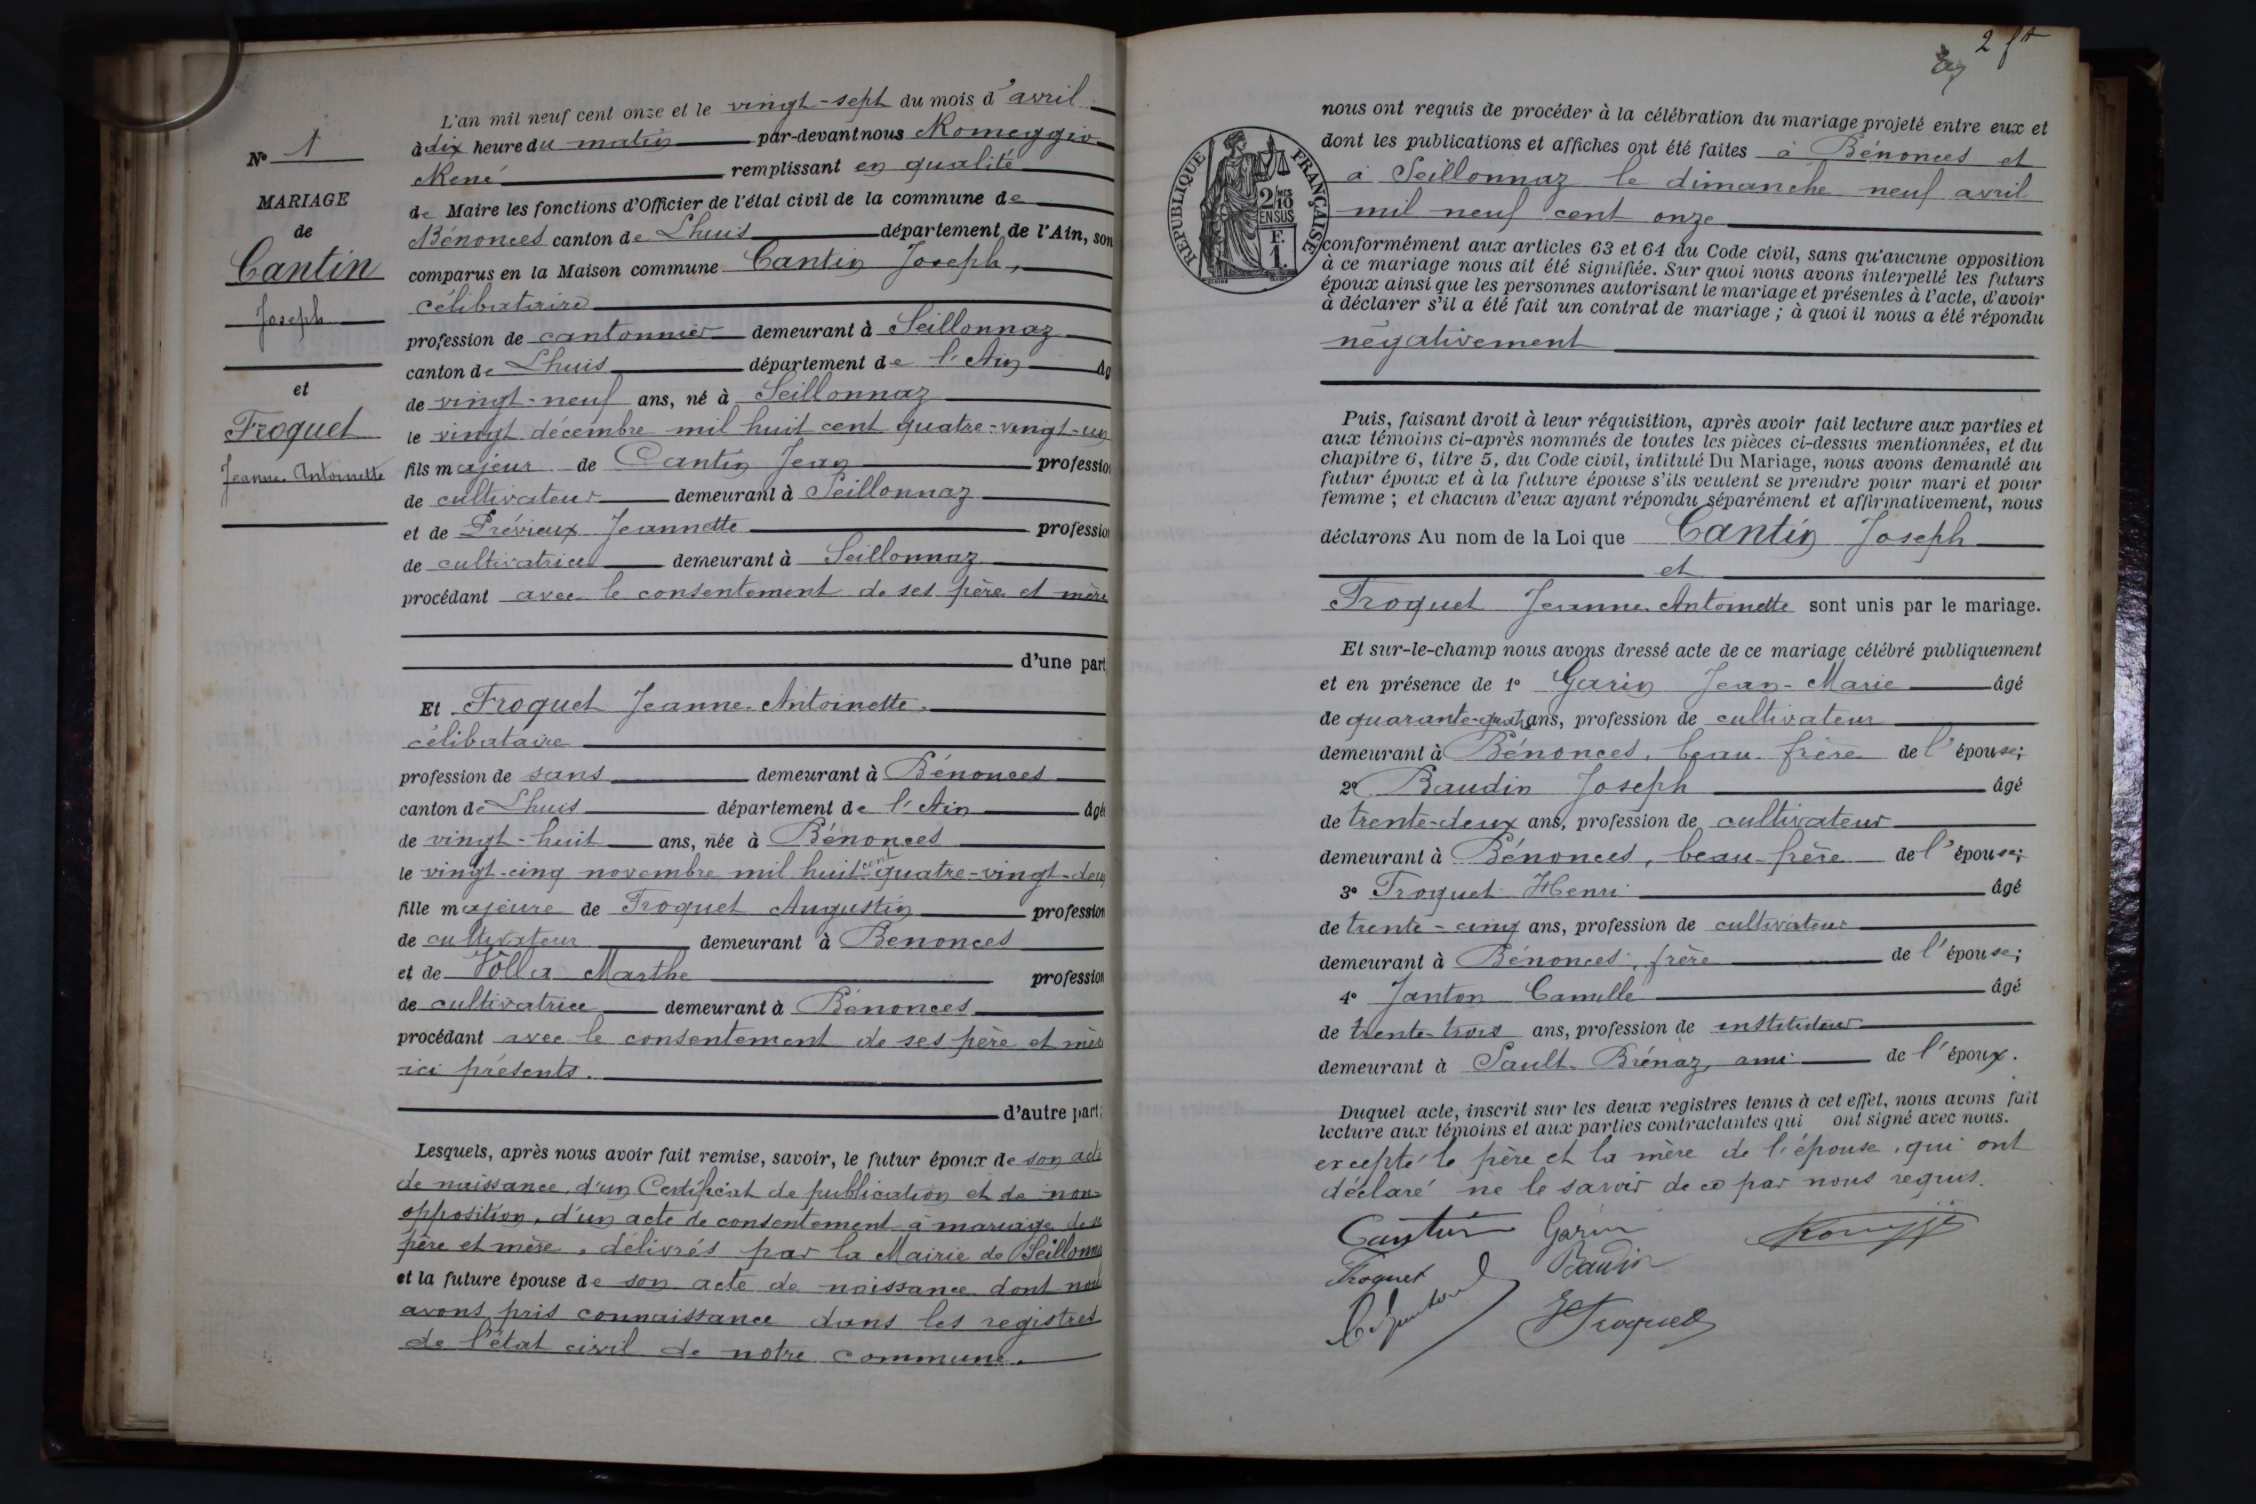 N° 1
MARIAGE
de
Cantin
Joseph
et
Froquet
Jeanne Antoinette
L'an mil neuf cent onze et le vingt-sept du mois d'avril
à dix heure du matin par-devant nous Romeggio
René remplissant en qualité
de Maire les fonctions d'Officier de l'état civil de la commune de
Bénonces canton de Lhuis département de l'Ain, son
comparus en la Maison commune Cantin Joseph,
célibataire
profession de cantonnier demeurant à Seillonnaz
canton de Lhuis département de l'Ain âg
de vingt-neuf ans, né à Seillonnaz
le vingt décembre mil huit cent quatre-vingt-un
fils majeur de Cantin Jean profession
de cultivateur demeurant à Seillonnaz
et de Prévieux Jeannette profession
de cultivatrice demeurant à Seillonnaz
procédant avec le consentement de ses père et mère
d'une part
Et Froquet Jeanne Antoinette.
célibataire
profession de sans demeurant à Bénonces
canton de Lhuis département de l'Ain âgée
de vingt-huit ans, née à Bénonces
le vingt-cinq novembre mil huit cent quatre-vingt-deux
fille majeure de Froquet Augustin profession
de cultivateur demeurant à Benonces
et de Vôlla Marthe profession
de cultivatrice demeurant à Bénonces
procédant avec le consentement de ses père et mère
ici présents.
d'autre part;
Lesquels, après nous avoir fait remise, savoir, le futur époux de son acte
de naissance, d'un Certificat de publication et de non-
opposition, d'un acte de consentement à mariage de ses
père et mère, délivrés par la Mairie de Seillonna
et la future épouse de son acte de naissance dont nous
avons pris connaissance dans les registres
de l'état civil de notre commune.
2 ft
nous ont requis de procéder à la célébration du mariage projeté entre eux et
dont les publications et affiches ont été faites à Bénonces et
à Seillonnaz le dimanche neuf avril
mil neuf cent onze
RÉPUBLIQUE FRANÇAISE
2/10
EN SUS
F.
1.
conformément aux articles 63 et 64 du Code civil, sans qu'aucune opposition
à ce mariage nous ait été signifiée. Sur quoi nous avons interpellé les futurs
époux ainsi que les personnes autorisant le mariage et présentes à l'acte, d'avoir
à déclarer s'il a été fait un contrat de mariage ; à quoi il nous a été répondu
négativement
Puis, faisant droit à leur réquisition, après avoir fait lecture aux parties et
aux témoins ci-après nommés de toutes les pièces ci-dessus mentionnées, et du
chapitre 6, titre 5, du Code civil, intitulé Du Mariage, nous avons demandé au
futur époux et à la future épouse s'ils veulent se prendre pour mari et pour
femme ; et chacun d'eux ayant répondu séparément et affirmativement, nous
déclarons Au nom de la Loi que Cantin Joseph
et
Froquet Jeanne Antoinette sont unis par le mariage.
Et sur-le-champ nous avons dressé acte de ce mariage célébré publiquement
et en présence de 1° Garin Jean-Marie âgé
de quarante-quatre ans, profession de cultivateur
demeurant à Bénonces, beau-frère de l'épouse;
2° Baudin Joseph âgé
de trente-deux ans, profession de cultivateur
demeurant à Bénonces, beau-frère de l'épouse;
3° Froquet Henri âgé
de trente-cinq ans, profession de cultivateur
demeurant à Bénonces, frère de l'épouse;
4° Janton Camille âgé
de trente-trois ans, profession de instituteur
demeurant à Sault-Brénaz, ami de l'époux.
Duquel acte, inscrit sur les deux registres tenus à cet effet, nous avons fait
lecture aux témoins et aux parties contractantes qui ont signé avec nous.
excepté le père et la mère de l'épouse, qui ont
déclaré ne le savoir de ce par nous requis.
Cantin Garin Romeggio
Froquet Baudin
C. Janton H Froquet